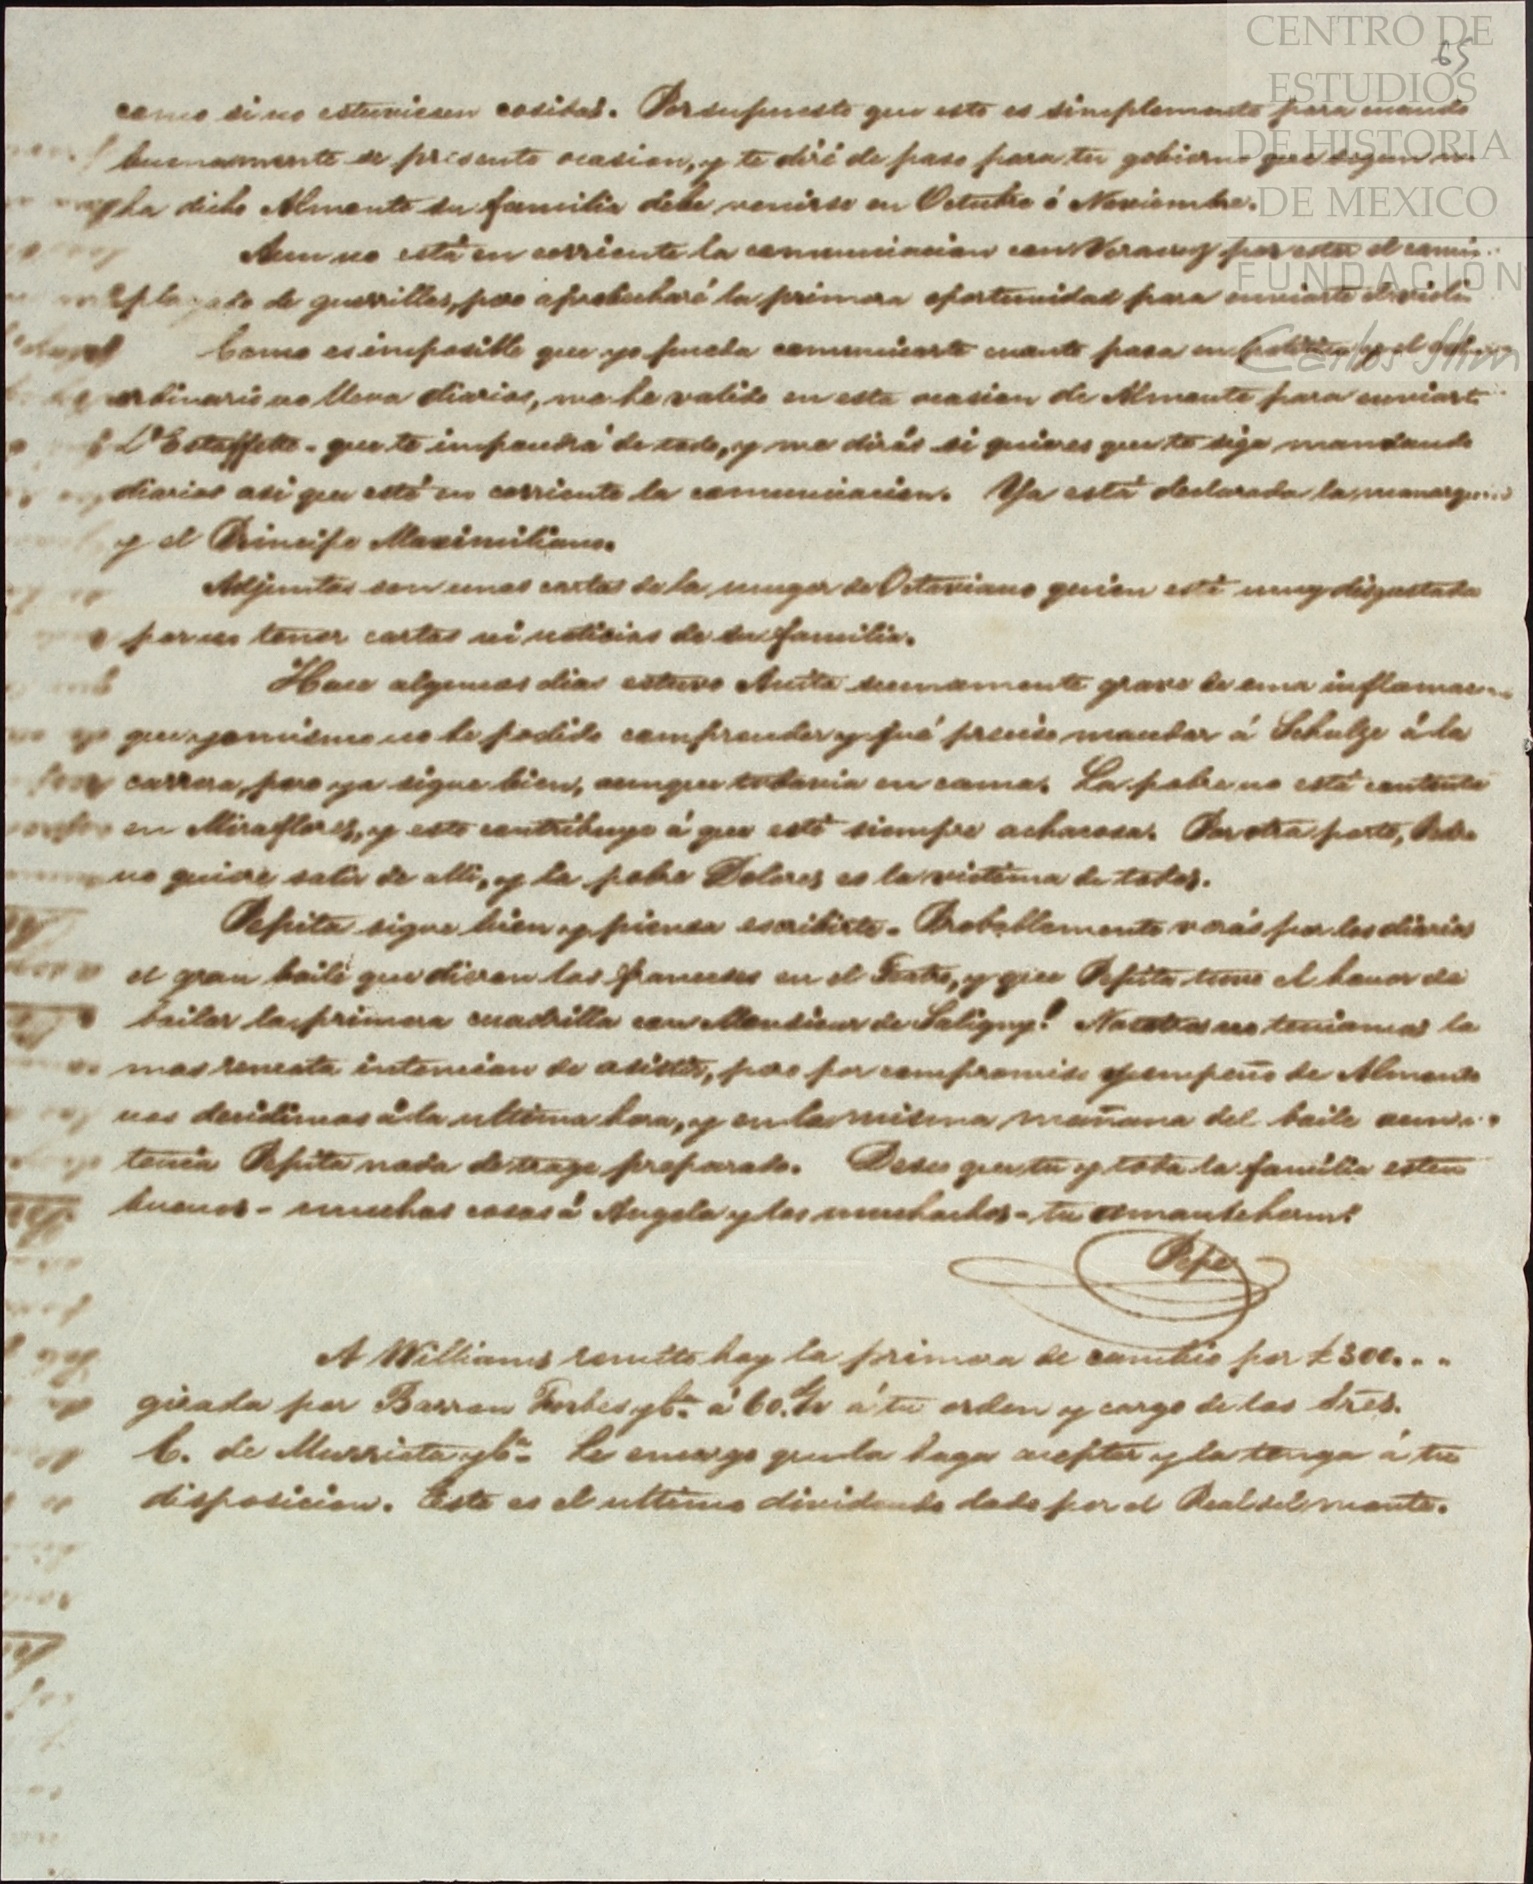 CENTRO DE
ESTUDIOS
DE HISTORIA
DE MEXICO
FUNDACIÓN
Carlos Slim
65
como si no estuviesen cositas. Por supuesto que esto es simplemente para cuando
buenamente se presente ocasion, y te diré de paso para tu gobierno que segun
ha dicho Almonte su familia debe venirse en Octubre ó Noviembre.
Aun no está en corriente la comunicacion con Veracruz por estar el camin
de guerrillas, pero aprobecharé la primera oportunidad para enviarte el violin
Como es imposible que yo pueda comunicarte cuanto pasa en politica y el
ordinario no lleva diarios, me he valido en esta ocasion de Almonte para enviart
L'Estaffette - que te impondrá de todo, y me dirás si quieres que te siga mandando
diarios asi que esté en corriente la comunicacion. Ya está declarada la monarqu
y el Principe Maximiliano.
Adjuntas son unas cartas de la muger de Octaviano quien está muy disgustada
por no tener cartas ni noticias de su familia.
Hace algunos dias estuvo Anita sumamente grave de una inflamac
que yo mismo no he podido comprender y fué preciso mandar á Schulze á la
carrera, pero ya sigue bien, aunque todavia en cama. La pobre no está contenta
en Miraflores, y esto contribuye á que esté siempre achacosa. Por otra parte,
no quiere salir de alli, y la pobre Dolores es la victima de todos.
Pepita sigue bien y piensa escribirte. Probablemente verás por los diarios
el gran baile que dieron los franceses en el Teatro, y que Pepita tuvo el honor de
bailar la primera cuadrilla con Monsieur de Saligny! Nosotros no teniamos la
mas remota intencion de asistir, pero por compromiso y empeño de Almonte
nos decidimos á la ultima hora, y en la misma mañana del baile aun
tenia Pepita nada de trage preparado. Deseo que tu y toda la familia esten
buenos - muchas cosas á Angela y los muchachos - tu amante herm?
Pepe
A Williams remito hoy la primera de cambio por £300...
girada por Barron Forbes y Cª. á 60 d/v á tu orden y cargo de los Sres.
C. de Murrieta y Cª. Le encargo que la haga aceptar y la tenga á tu
disposicion. Este es el ultimo dividendo dado por el Real del monte.